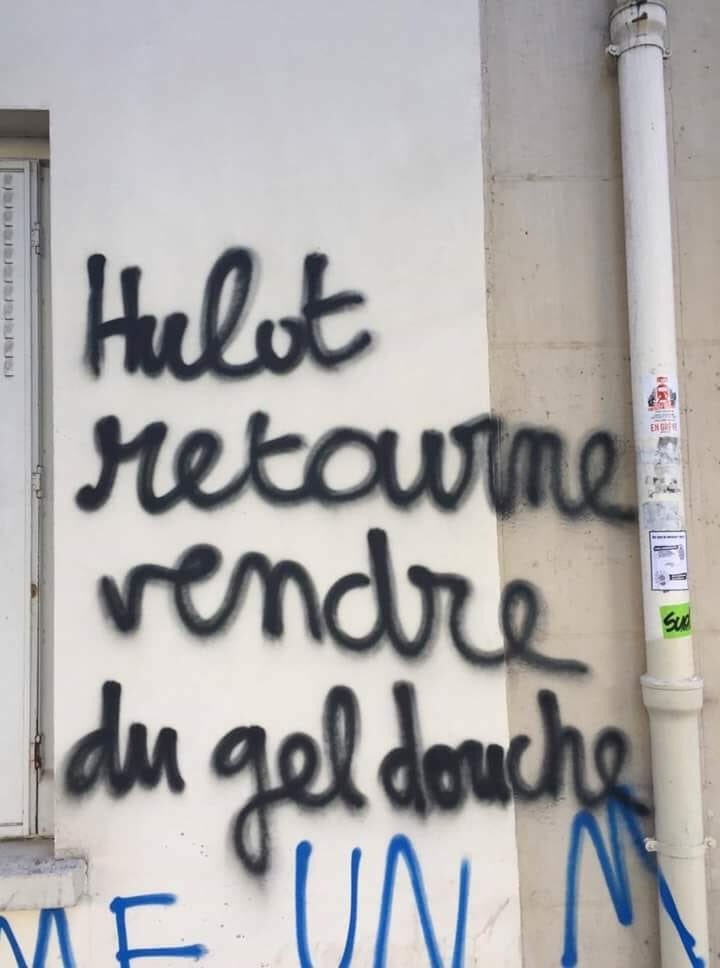 Hulot
retourne
vendre
du gel douche
EN GRÈVE
ME UN M